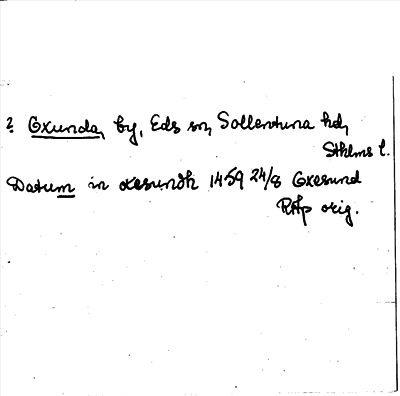 ? Oxunda, by, Eds sn, Sollentuna hd,
Sthlms l.
Datum in oxesundh 1459 24/8 Oxesund
RAp orig.